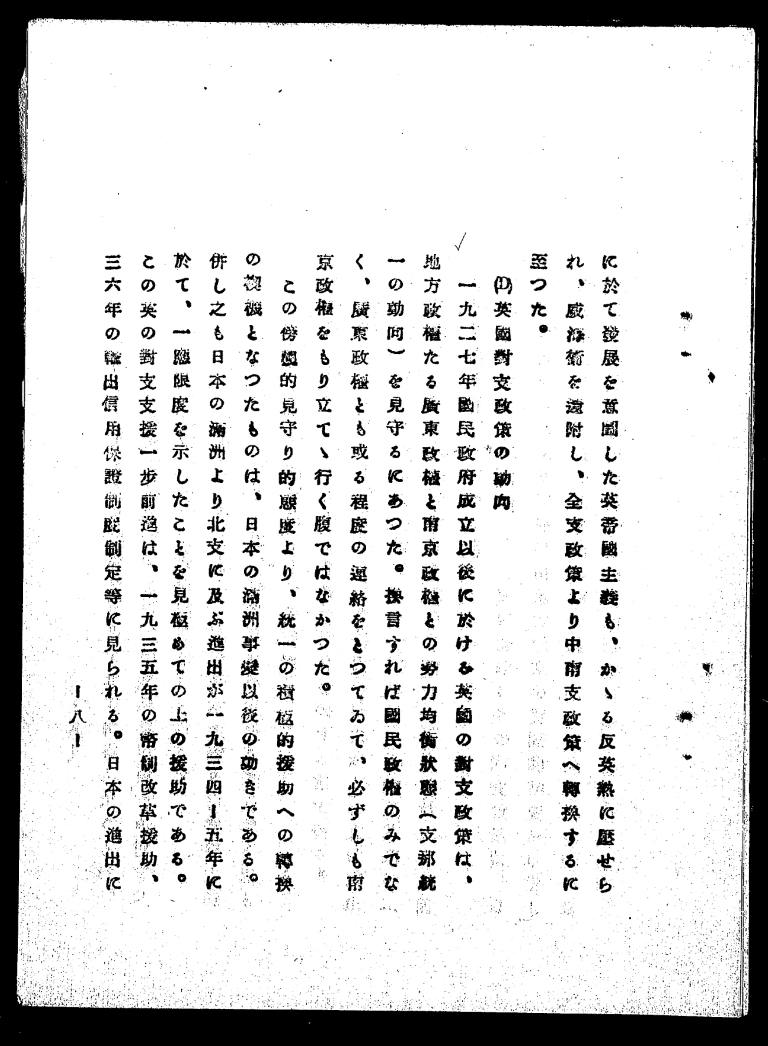 に於て發展を意圖した英帝國主義も、かゝる反英熱に壓せら
れ、威海衛を還附し、全支政策より中南支政策へ轉換するに
至つた。
(1)英國對支政策の動向
一九二七年國民政府成立以後に於ける英國の對支政策は、
地方政權たる廣東政權と南京政權との勢力均衡狀態（支那統
一の動向）を見守るにあつた。換言すれば國民政權のみでな
く、廣東政權とも或る程度の連絡をとつてゐて、必ずしも南
京政權をもり立てゝ行く腹ではなかつた。
この傍觀的見守り的態度より、統一の積極的援助への轉換
の契機となつたものは、日本の滿洲事變以後の動きである。
併し之も日本の滿洲より北支に及ぶ進出が一九三四ー五年に
於て、一應限度を示したことを見極めての上の援助である。
この英の對支支援一步前進は、一九三五年の幣制改革援助、
三六年の輸出信用保證制度制定等に見られる。日本の進出に
ー八ー